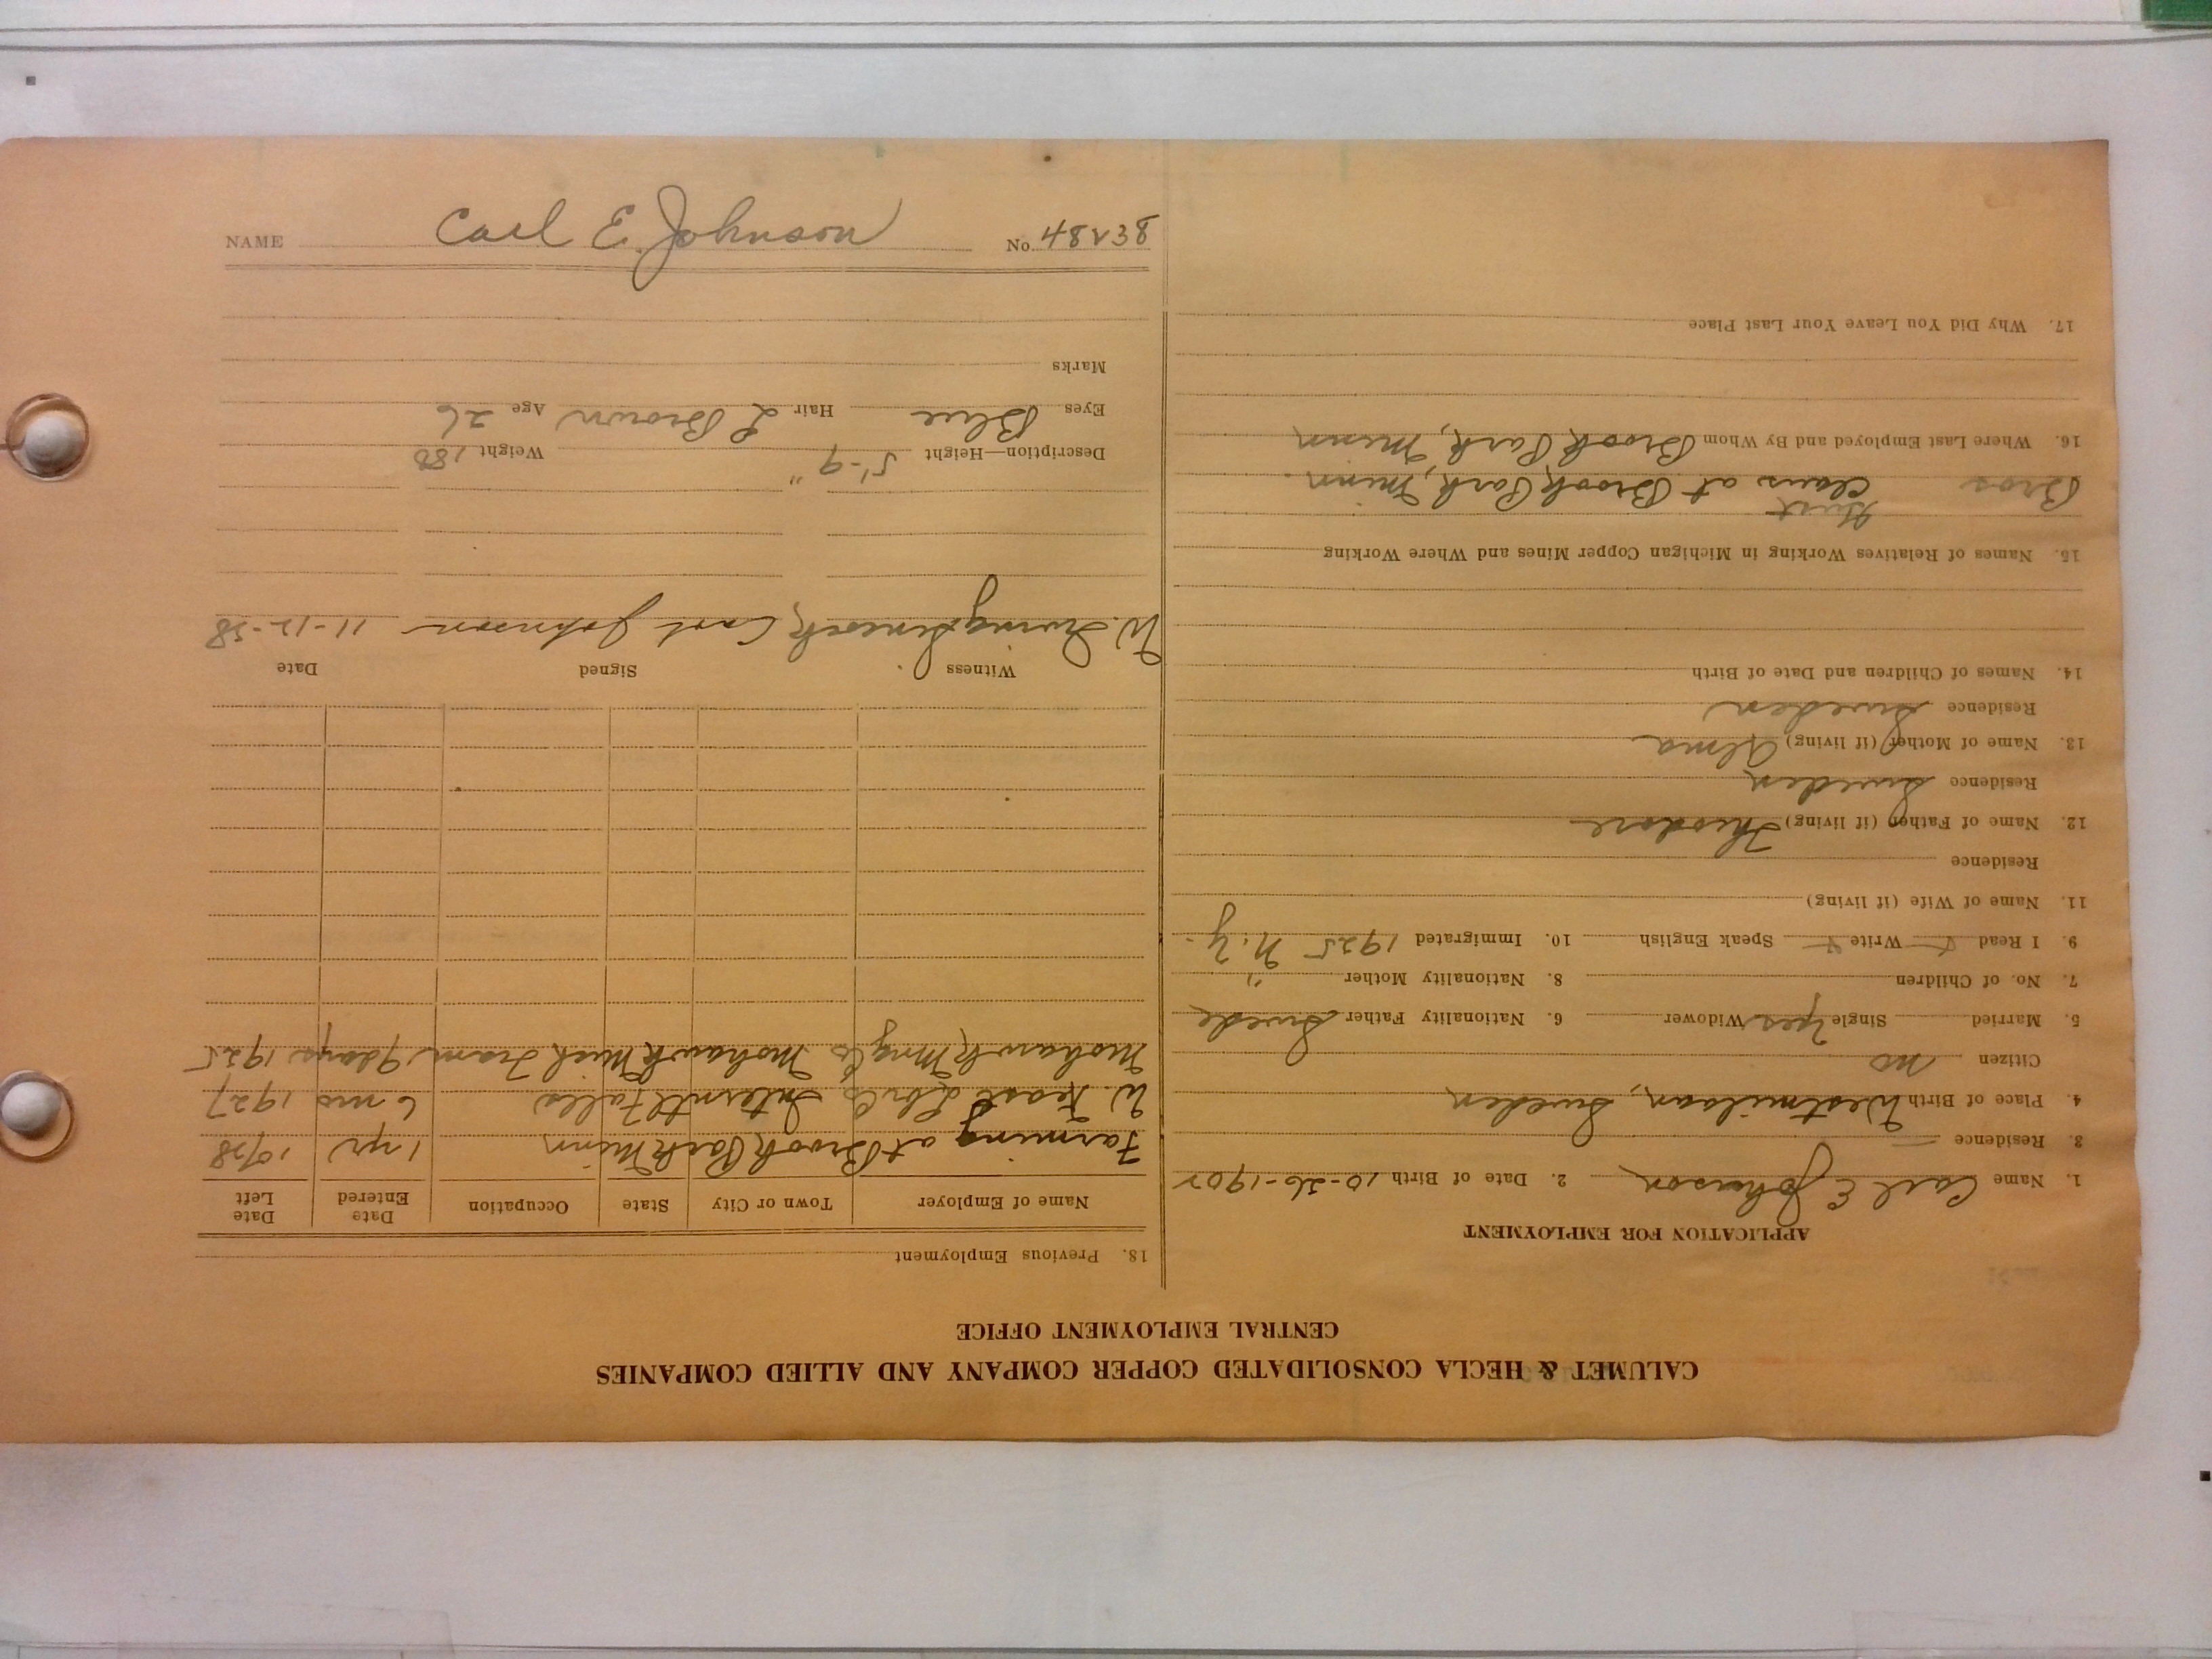 CALUMET & HECLA CONSOLIDATED COPPER COMPANY AND ALLIED COMPANIES
CENTRAL EMPLOYMENT OFFICE
APPLICATION FOR EMPLOYMENT
1. Name Carl E Johnson 2. Date of Birth 10-26-1902
3. Residence
4. Place of Birth Westmilaan, Sweden
Citizen no
5. Married Single yes Widower 6. Nationality Father Swede
7. No. of Children 8. Nationality Mother "
9. I Read Write Speak English 10. Immigrated 1925 N.Y.
11. Name of Wife (if living)
Residence
12. Name of Father (if living) Theodore
Residence Sweden
13. Name of Mother (if living) Alma
Residence Sweden
14. Names of Children and Date of Birth
15. Names of Relatives Working in Michigan Copper Mines and Where Working
Gust
Bros Claus at Brook Park, Minn.
16. Where Last Employed and By Whom Brook Park, Minn
17. Why Did You Leave Your Last Place
18. Previous Employment
Name of Employer Town or City State Occupation Date Entered Date Left
Farming at Brook Park Minn 1 yr 10/28
W. Kease Internl Falls 6 mo 1927
Mohawk Mng Co Mohawk Mich Tram 9 days 1925
Witness Signed Date
W. Irving Carl Johnson 11-12-28
Description—Height 5'-9" Weight 180
Eyes Blue Hair L Brown Age 26
Marks
NAME Carl E. Johnson No. 48238